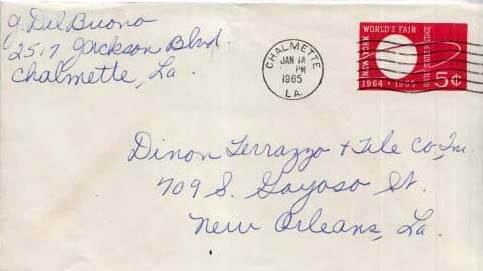 J. DelBuono
2517 Jackson Blvd.
Chalmette, La.
CHALMETTE
JAN 14
PM
1965
LA.
WORLD'S FAIR
NEW YORK
1964 - 1965
5¢
Dinon Terrazzo + Tile Co, Inc
709 S. Gayoso St.
New Orleans, La.